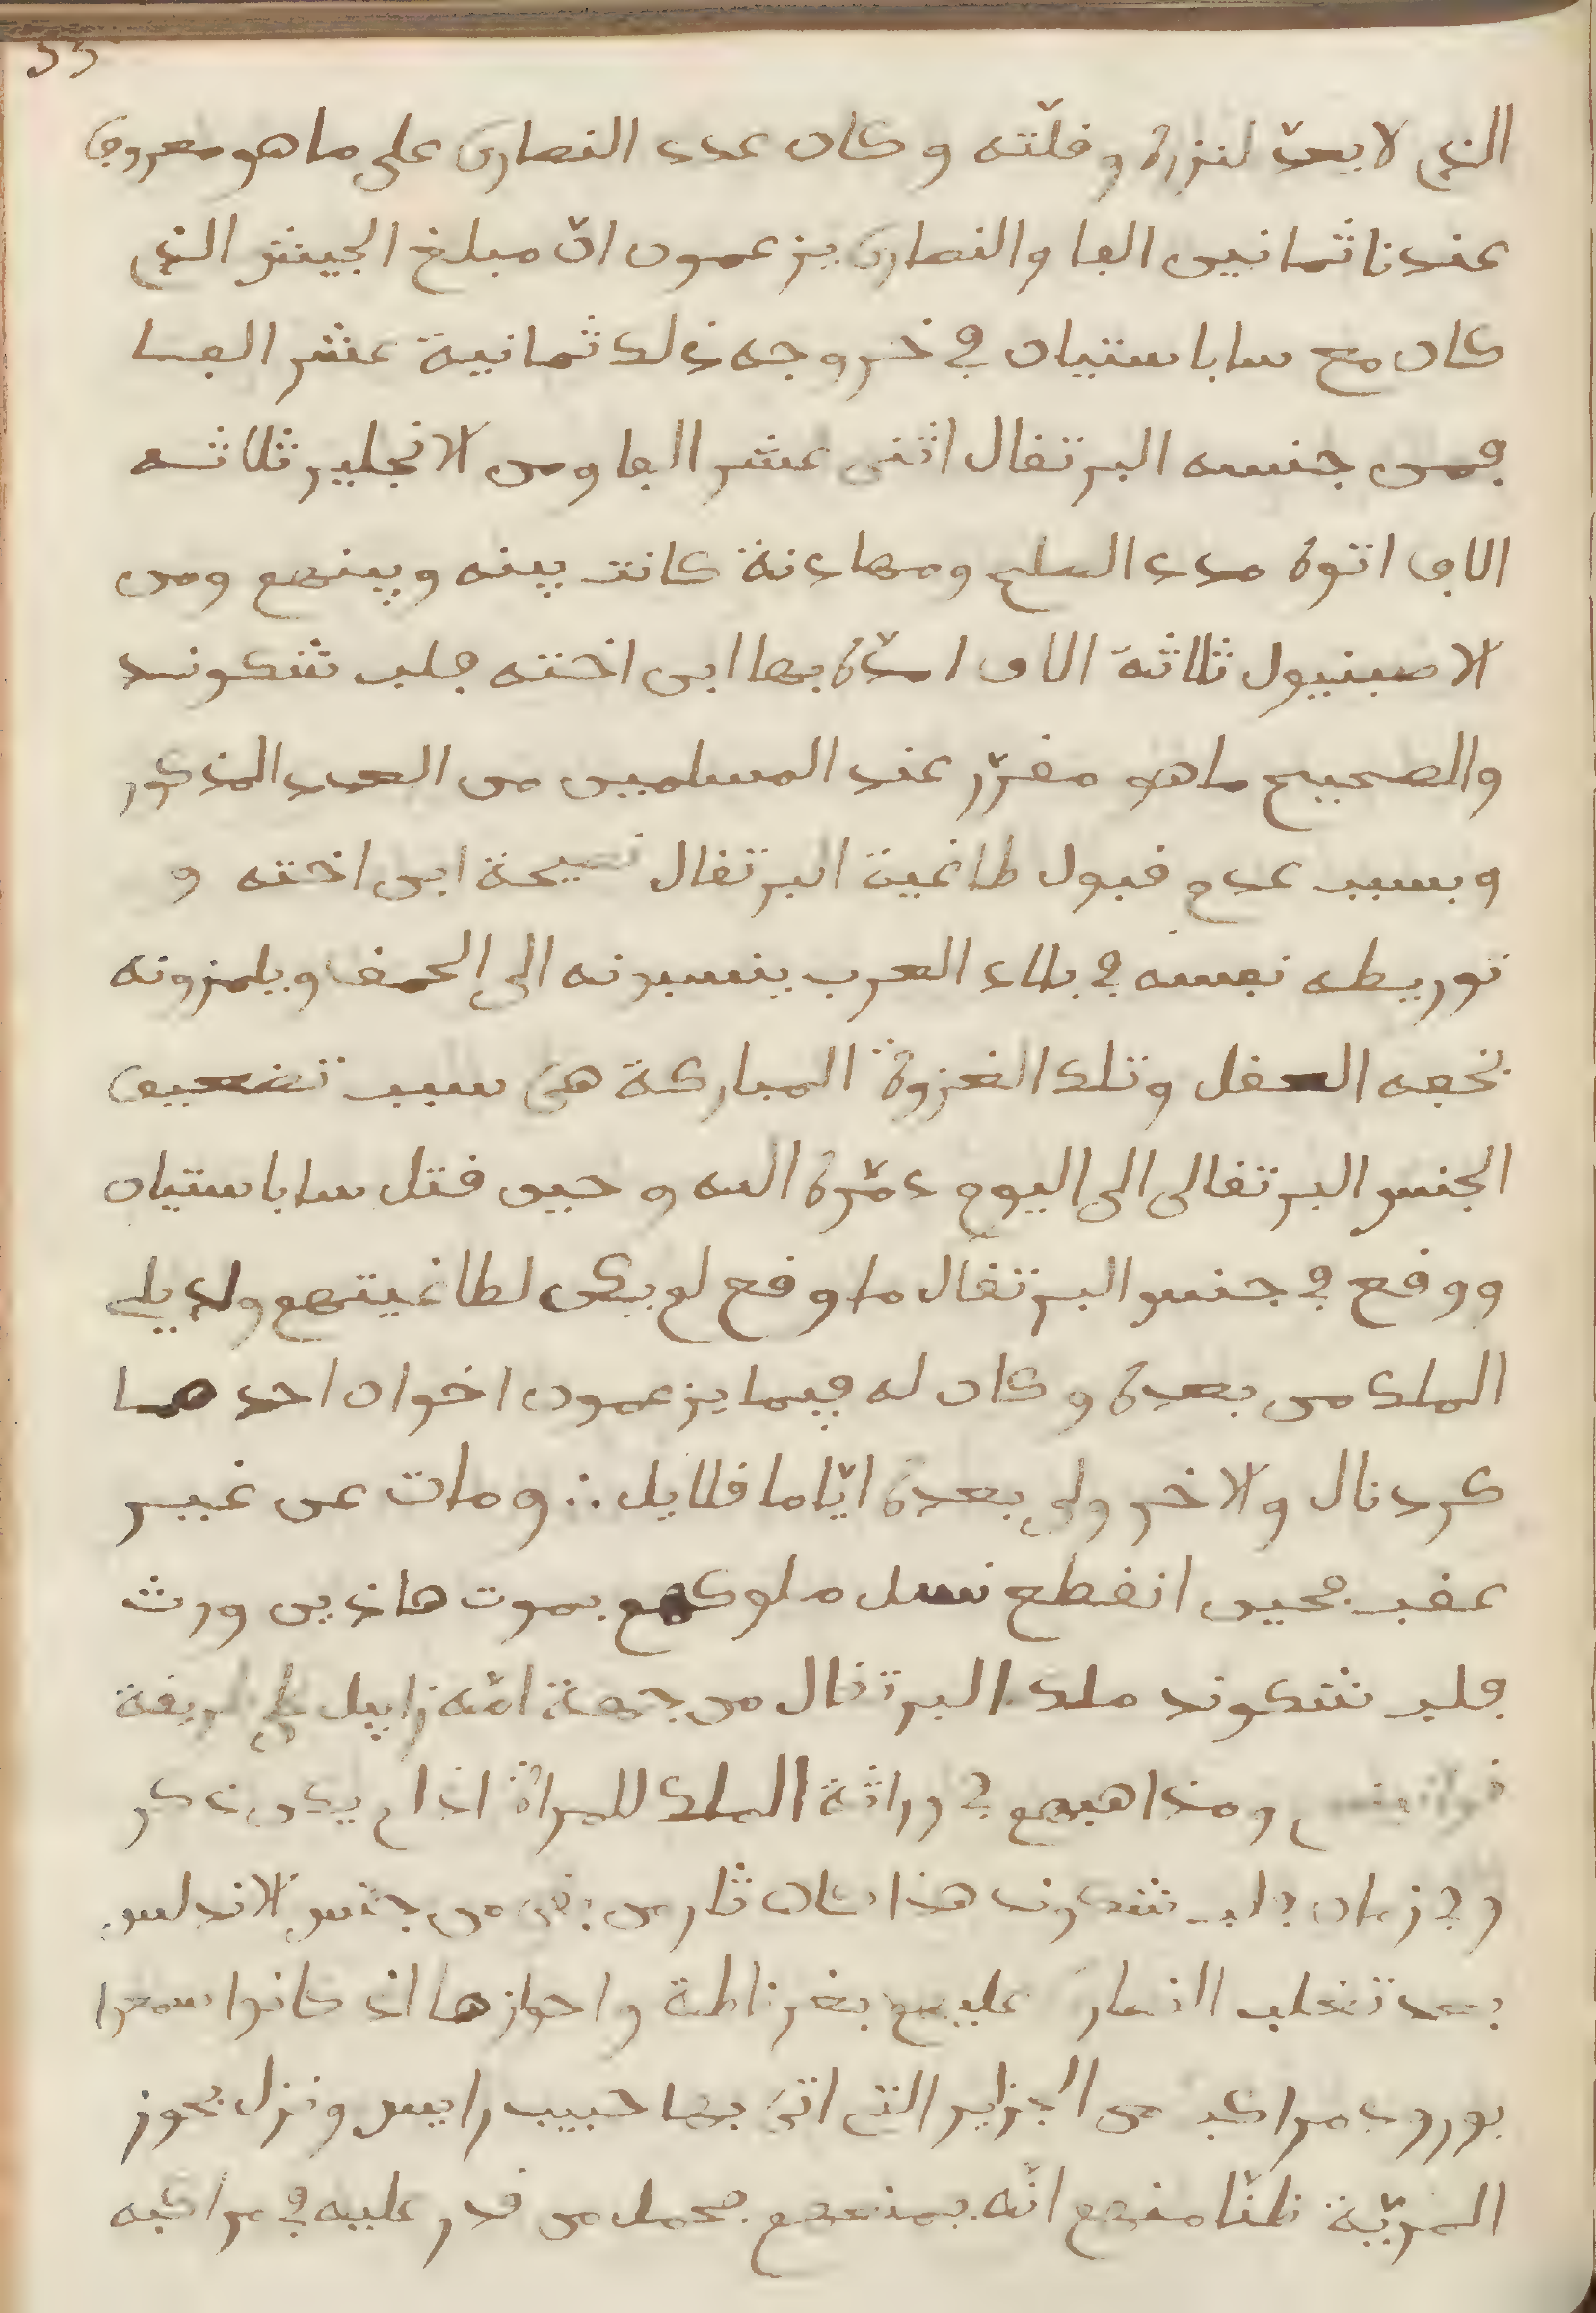 53
الذي لا يعدّ لنزره وقلّته وكان عدد النصارى على ما هو معروف
عندنا ثمانين الفا والنصارى يزعمون انّ مبلغ الجيش الذي
كان مع ساباستيان في خروجه ذلك ثمانية عشر الفا
فمن جنسه البرتقال اثنى عشر الفا ومن الانجليز ثلاثه
الاف اتوه مدد الصلح ومهادنة كانت بينه وبينهم ومن
الاصبنيول ثلاثة الاف امدّه بها ابن اخته جلب شكوند
والصحيح ما هو مقرّر عند المسلمين من العدد المذكور
وبسبب عدم قبول طاغية البرتقال نصيحة ابن اخته و
توريطه نفسه في بلاد العرب ينسبونه الى الحمق ويلمزونه
بخفه العقل وتلك الغزوة المباركة هي سبب تضعيف
الجنس البرتقالى الى اليوم دمّره الله وحين قتل ساباستيان
ووقع في جنس البرتقال ما وقع لم يكن لطاغيتهم ولد يلي
الملك من بعده وكان له فيما يزعمون اخوان احدهما
كردنال والاخر ولي بعده ايّاما قلايل ∴ ومات عن غير
عقب فحين انقطع نسل ملوكهم بموت هاذين ورث
جلب شكوند ملك البرتقال من جهة امّه زابيل على طريقة
قوانينهم ومذاهبهم في وراثة الملك للمراة اذا لم يكن ذكر
وفي زمان جلب شكوند هذا كان ثار من بقى من جنس الاندلس
بعد تغلب النصارى عليهم بغرناطة واحوازها اذ كانوا سمعوا
بورود مراكب من الجزاير التي اتى بها حبيب رايس ونزل بحوز
المريّة ظنّا منهم انّه يمنعهم فحمل من قدر عليه في مراكبه